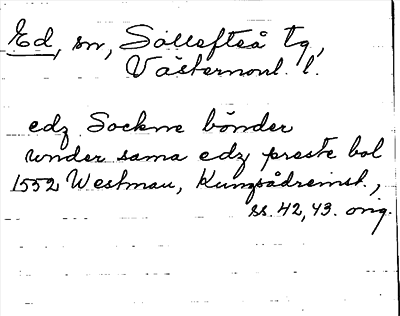 Ed, sn, Sollefteå tg,
Västernorrl. l.
edz Sockne bönder
under sama edz preste bol
1552 Westman, Kungsådreinst.,
ss. 42, 43. orig.